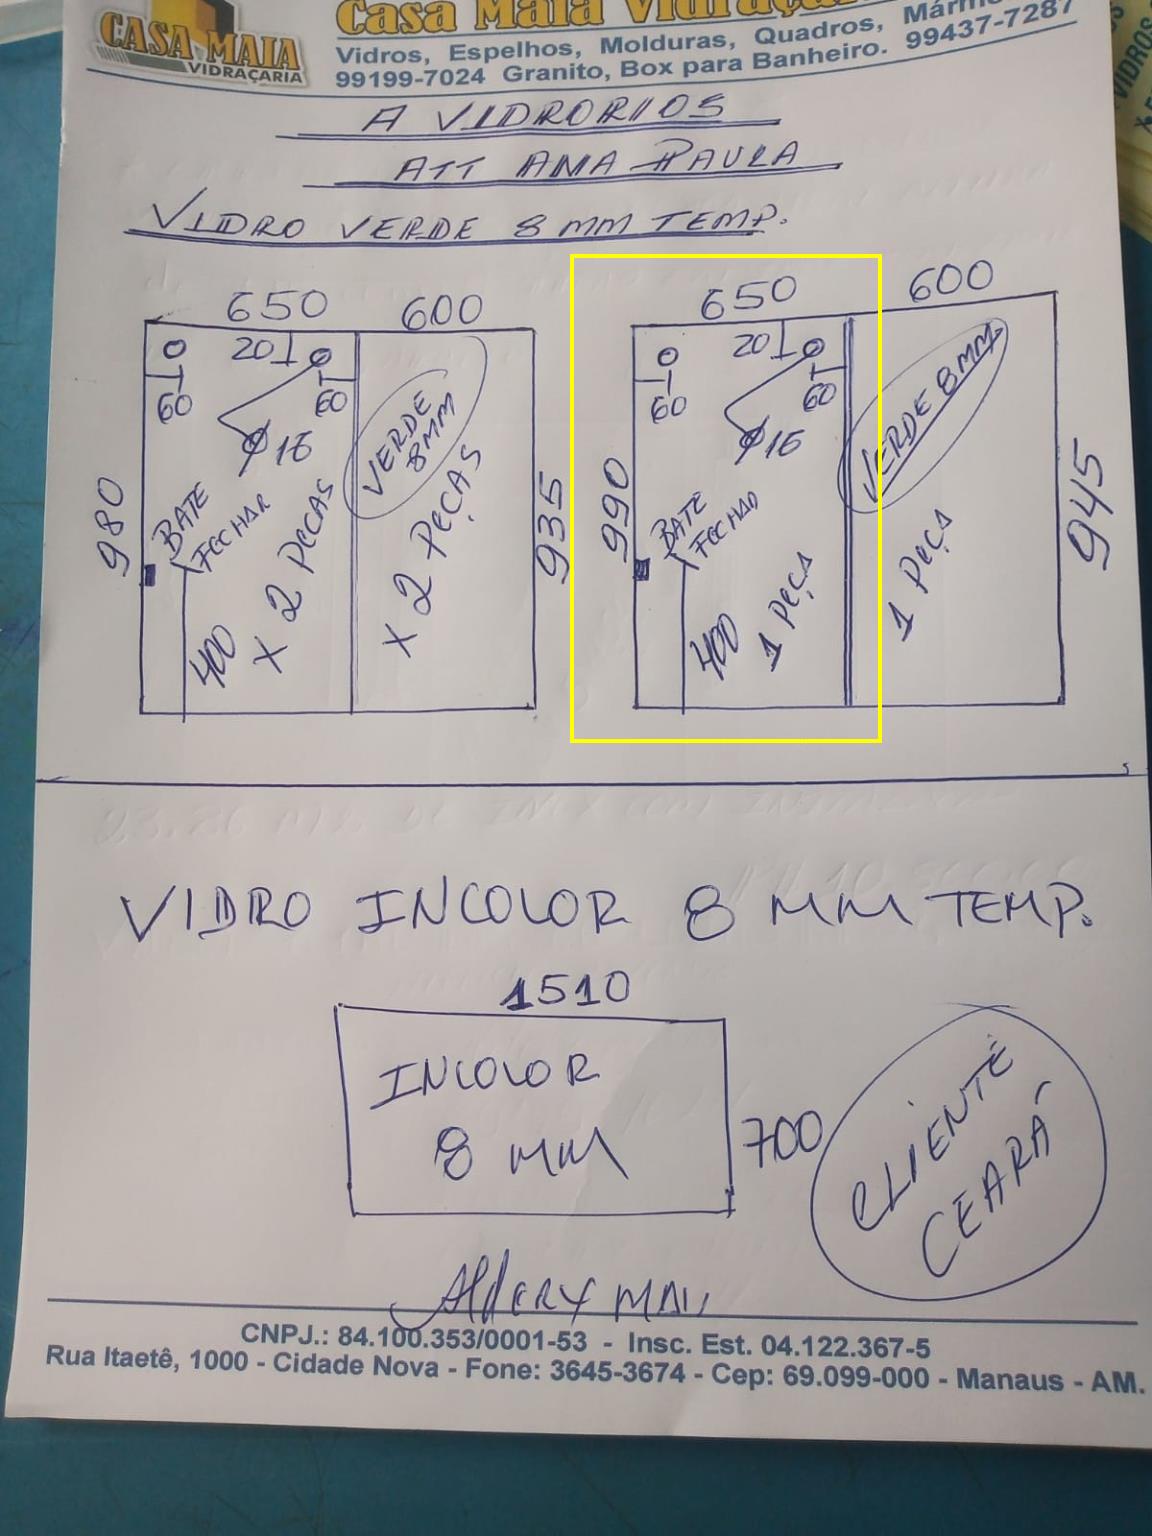 CASA MAIA
VIDRAÇARIA
Casa Maia Vidraçar
Vidros, Espelhos, Molduras, Quadros, Mármo
99199-7024 Granito, Box para Banheiro. 99437-7287
VIDROS
A VIDRORIOS
ATT ANA PAULA
VIDRO VERDE 8 MM TEMP.
650 600
20
60 60
Ø16
VERDE
8MM
980
BATE
FECHAR
400
X 2 PECAS
X 2 PEÇAS
935
650 600
20
60 60
Ø16
VERDE 8MM
990
BATE
FECHAR
400
1 PEÇA
1 PEÇA
945
VIDRO INCOLOR 8 MM TEMP.
1510
INCOLOR
8 MM
700
CLIENTE
CEARÁ
CNPJ.: 84.100.353/0001-53 - Insc. Est. 04.122.367-5
Rua Itaetê, 1000 - Cidade Nova - Fone: 3645-3674 - Cep: 69.099-000 - Manaus - AM.